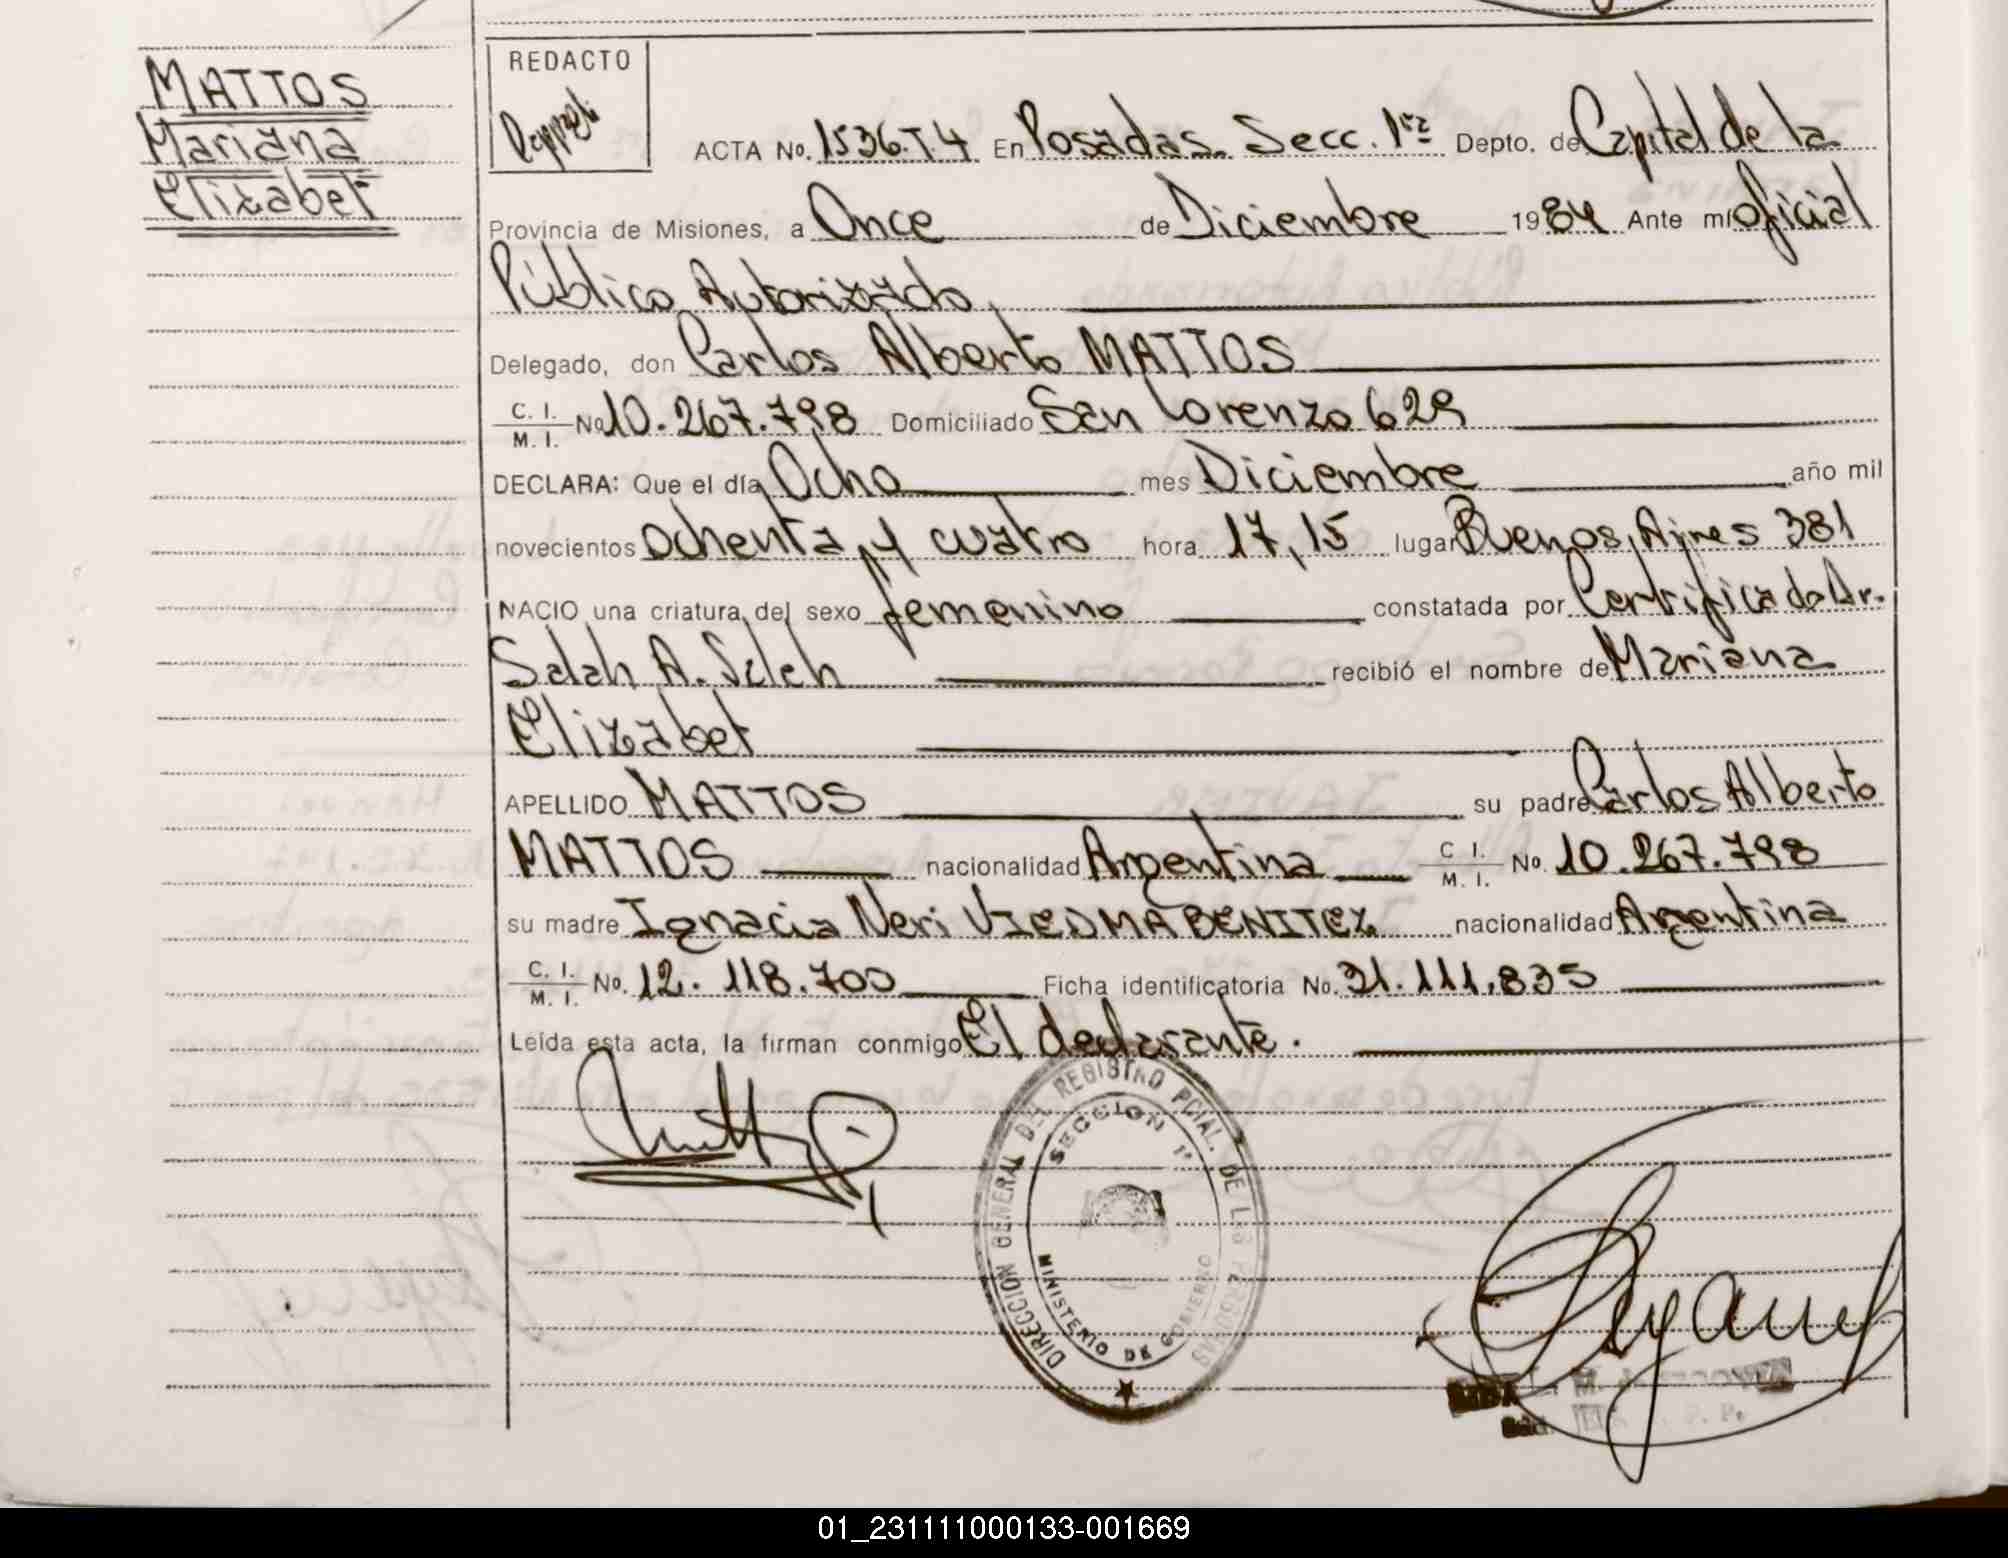 MATTOS
Mariana
Elizabet
REDACTO
ACTA No. 1536.T4 En Posadas. Secc. 1ra Depto. de Capital de la
Provincia de Misiones, a Once de Diciembre 1984 Ante mí Oficial
Público Autorizado,
Delegado, don Carlos Alberto MATTOS
C. I. / M. I. No 10.267.798 Domiciliado San Lorenzo 629
DECLARA: Que el día Ocho mes Diciembre año mil
novecientos ochenta y cuatro hora 17,15 lugar Buenos Aires 381
NACIO una criatura del sexo femenino constatada por Certificado Dr.
Salah A. Saleh recibió el nombre de Mariana
Elizabet
APELLIDO MATTOS su padre Carlos Alberto
MATTOS nacionalidad Argentina C I. / M. I. No. 10.267.798
su madre Ignacia Neri VIEDMA BENITEZ nacionalidad Argentina
C. I. / M. I. No. 12.118.700 Ficha identificatoria No. 31.111.835
Leída esta acta, la firman conmigo El declarante.
DIRECCION GENERAL DEL REGISTRO PCIAL. DE LAS PERSONAS
SECCION 1ª
MINISTERIO DE GOBIERNO
01_231111000133-001669